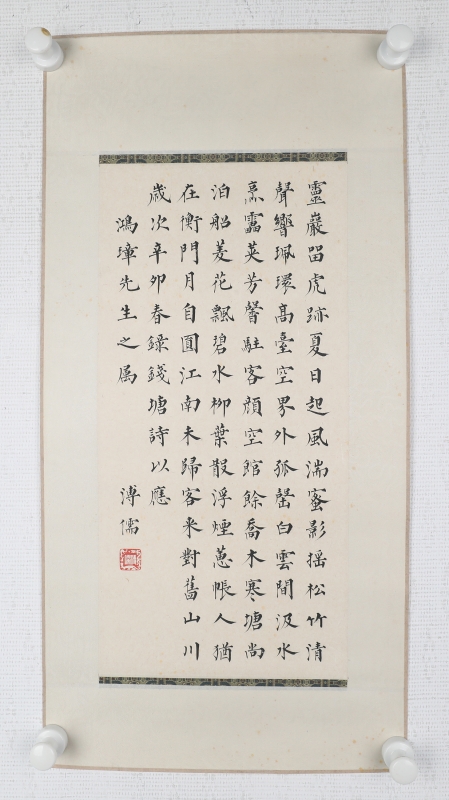 靈巖畱虎跡夏日起風湍蜜影搖松竹清
聲響珮環高臺空界外孤罄白雲間汲水
烹靁英芳馨駐客顔空館餘喬木寒塘尚
泊船菱花飄碧水柳葉散浮煙蕙帳人猶
在衡門月自圓江南未歸客來對舊山川
歲次辛卯春錄錢塘詩以應
鴻璋先生之属
溥儒